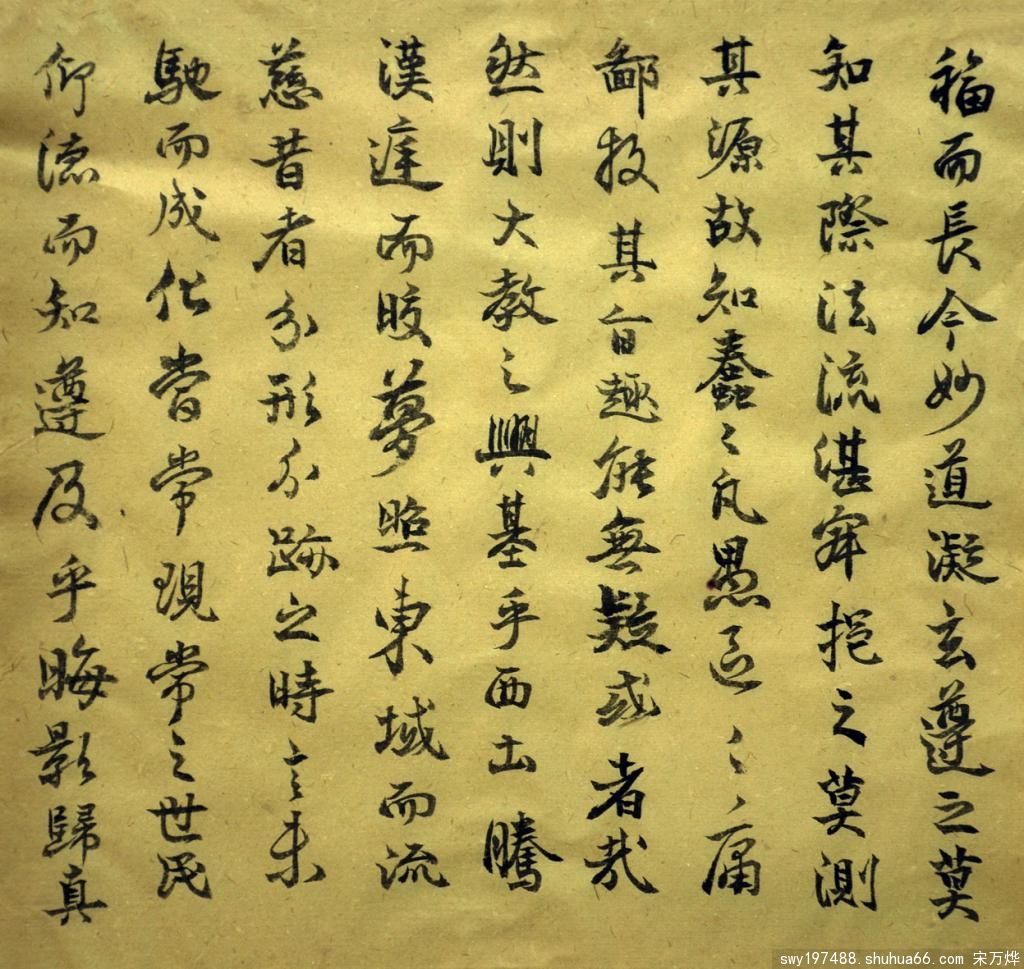 福而長今妙道凝玄遵之莫
知其際法流湛寂挹之莫測
其源故知蠢々凡愚區々庸
鄙投其旨趣能無疑或者哉
然則大教之興基乎西土騰
漢庭而皎夢照東域而流
慈昔者分形分跡之時言未
馳而成化當常現常之世民
仰德而知遵及乎晦影歸真
swy197488.shuhua66.com 宋万烨